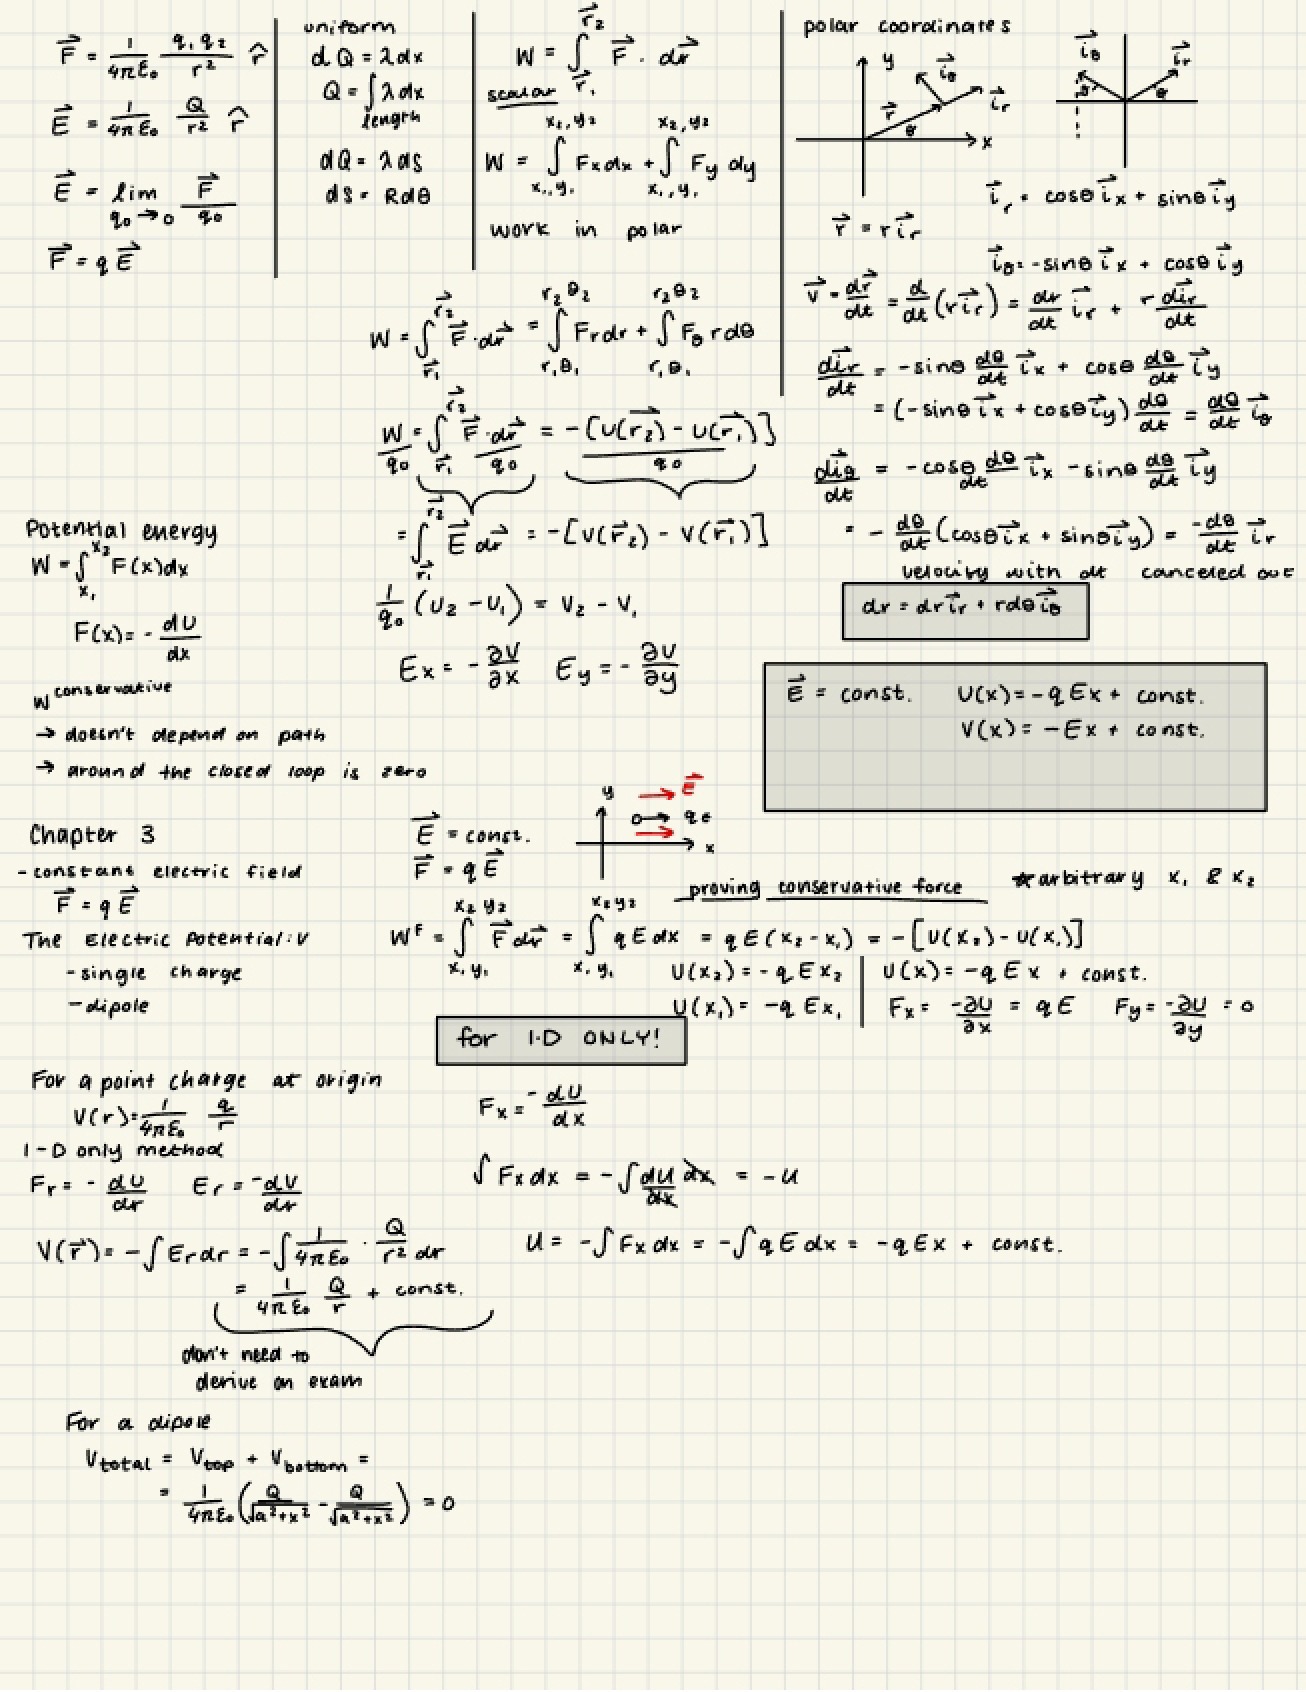 F⃗ = 1/4πε₀ q₁q₂/r² r̂
E⃗ = 1/4πε₀ Q/r² r̂
E⃗ = lim q₀→0 F⃗/q₀
F⃗ = qE⃗
uniform
dQ = λdx
Q = ∫ λdx
length
dQ = λds
ds = Rdθ
W = ∫ r⃗₁ r⃗₂ F⃗ · dr⃗
scalar
W = ∫ x₁,y₁ x₂,y₂ Fxdx + ∫ x₁,y₁ x₂,y₂ Fy dy
work in polar
W = ∫ r⃗₁ r⃗₂ F⃗·dr⃗ = ∫ r₁θ₁ r₂θ₂ Frdr + ∫ r₁θ₁ r₂θ₂ Fθ rdθ
W/q₀ = ∫ r⃗₁ r⃗₂ F⃗·dr⃗/q₀ = -[U(r⃗₂) - U(r⃗₁)]/q₀
= ∫ r⃗₁ r⃗₂ E⃗ dr⃗ = -[V(r⃗₂) - V(r⃗₁)]
1/q₀ (U₂ - U₁) = V₂ - V₁
Ex = - ∂V/∂x Ey = - ∂V/∂y
polar coordinates
y i⃗θ i⃗r r⃗ θ x
i⃗θ i⃗r θ θ
i⃗r = cosθ i⃗x + sinθ i⃗y
r⃗ = r i⃗r
i⃗θ = -sinθ i⃗x + cosθ i⃗y
v⃗ = dr⃗/dt = d/dt (r i⃗r) = dr/dt i⃗r + r di⃗r/dt
di⃗r/dt = -sinθ dθ/dt i⃗x + cosθ dθ/dt i⃗y
= (-sinθ i⃗x + cosθ i⃗y) dθ/dt = dθ/dt i⃗θ
di⃗θ/dt = -cosθ dθ/dt i⃗x - sinθ dθ/dt i⃗y
= - dθ/dt (cosθ i⃗x + sinθ i⃗y) = -dθ/dt i⃗r
velocity with dt canceled out
dr = dr i⃗r + rdθ i⃗θ
E⃗ = const. U(x) = -qEx + const.
V(x) = -Ex + const.
Potential energy
W = ∫ x₁ x₂ F(x)dx
F(x) = - dU/dx
W conservative
→ doesn't depend on path
→ around the closed loop is zero
Chapter 3
- constant electric field
F⃗ = qE⃗
The Electric Potential: V
- single charge
- dipole
E⃗ = const.
F⃗ = qE⃗
y E⃗ qE x
proving conservative force
*arbitrary x₁ & x₂
Wᶠ = ∫ x₁y₁ x₂y₂ F⃗dr⃗ = ∫ x₁y₁ x₂y₂ qEdx = qE(x₂-x₁) = -[U(x₂) - U(x₁)]
U(x₂) = -qEx₂ U(x) = -qEx + const.
U(x₁) = -qEx₁ Fx = -∂U/∂x = qE Fy = -∂U/∂y = 0
for 1-D ONLY!
Fx = -dU/dx
∫ Fxdx = -∫ dU/dx dx = -U
U = -∫ Fxdx = -∫ qEdx = -qEx + const.
For a point charge at origin
V(r) = 1/4πε₀ q/r
1-D only method
Fr = - dU/dr Er = -dV/dr
V(r⃗) = -∫ Erdr = -∫ 1/4πε₀ · Q/r² dr
= 1/4πε₀ Q/r + const.
don't need to
derive on exam
For a dipole
Vtotal = Vtop + Vbottom =
= 1/4πε₀ (Q/√a²+x² - Q/√a²+x²) = 0